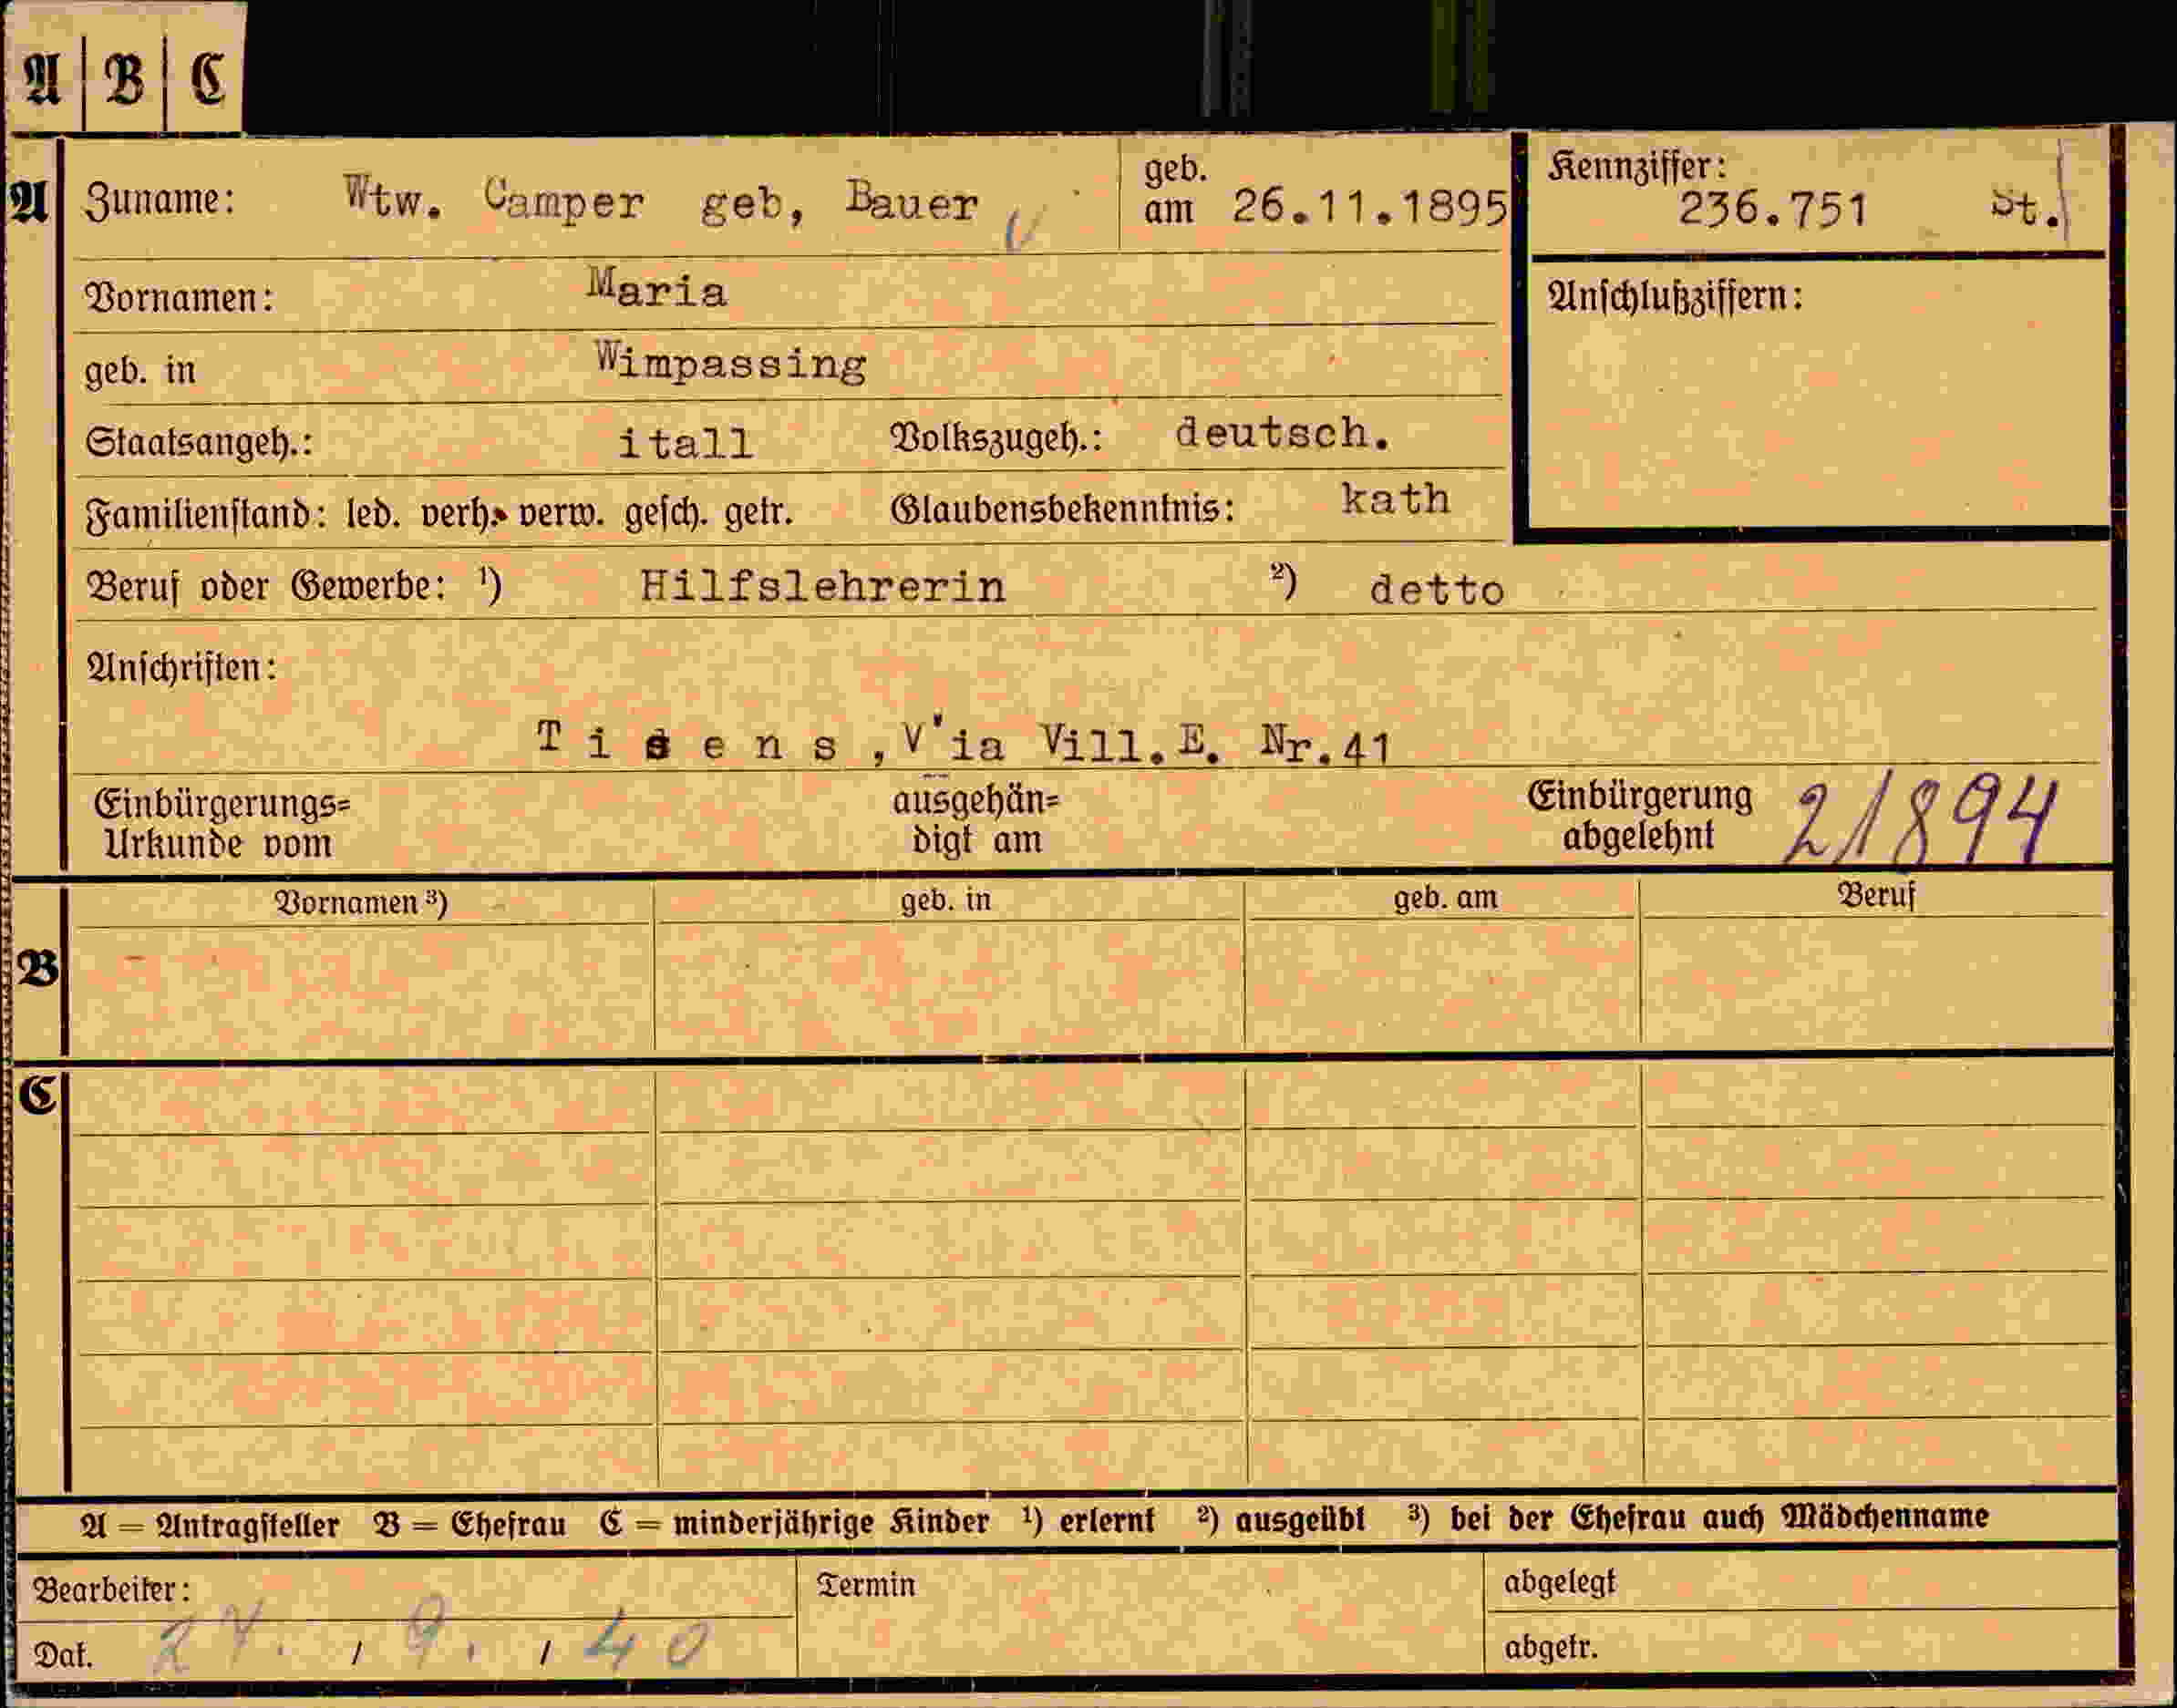 A B C
A Zuname: Wtw. Camper geb, Bauer geb. am 26.11.1895 Kennziffer: 236.751 St.
Vornamen: Maria Anschlußziffern:
geb. in Wimpassing
Staatsangeh.: itall Volkszugeh.: deutsch.
Familienstand: led. verh. verw. gesch. getr. Glaubensbekenntnis: kath
Beruf oder Gewerbe: ¹) Hilfslehrerin ²) detto
Anschriften:
T i s e n s ,V'ia Vill.E. Nr.41
Einbürgerungs= ausgehän= Einbürgerung 21894
Urkunde vom digt am abgelehnt
Vornamen ³) geb. in geb. am Beruf
B
C
A = Antragsteller B = Ehefrau C = minderjährige Kinder ¹) erlernt ²) ausgeübt ³) bei der Ehefrau auch Mädchenname
Bearbeiter: Termin abgelegt
Dat. 24. / 9. / 40 abgetr.